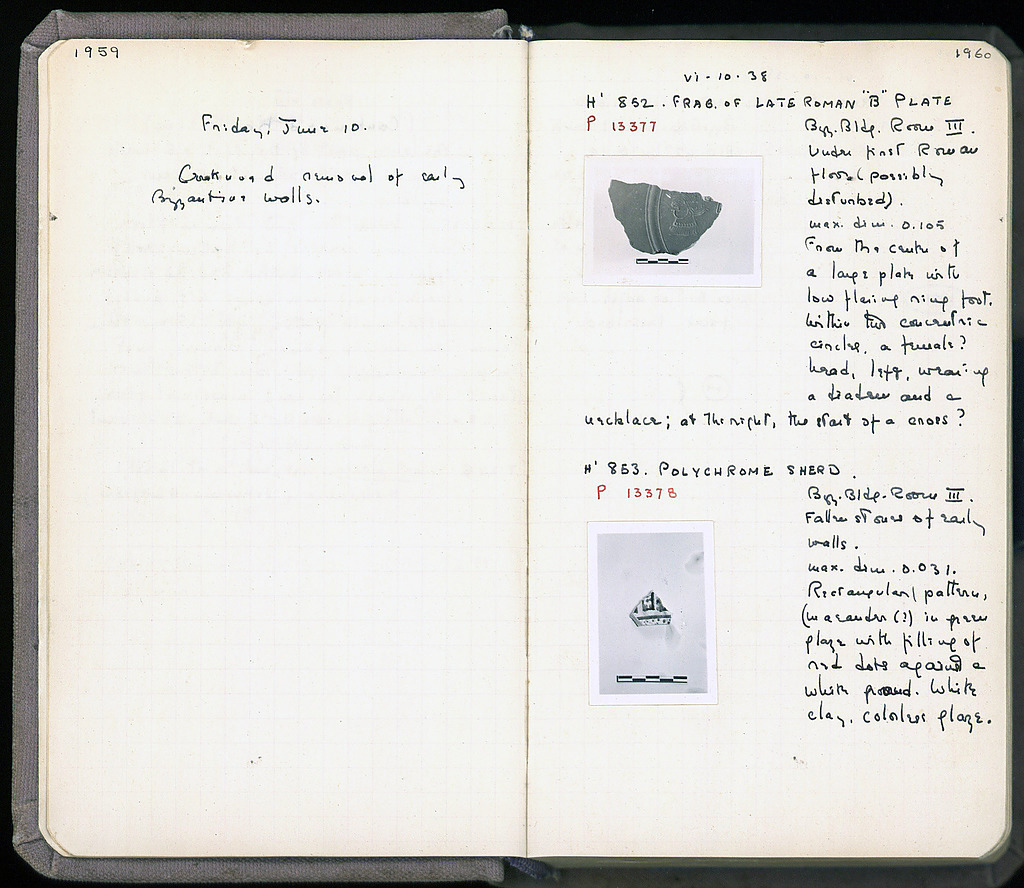 1959
Friday, June 10.
Continued removal of early
Byzantine walls.
1960
vi - 10 - 38
H' 852. FRAG. OF LATE ROMAN "B" PLATE
P 13377
Byz. Bldg. Room III.
Under first Roman
floor (possibly
disturbed).
max. dim. 0.105
From the center of
a large plate with
low flaring ring foot.
Within two concentric
circles, a female?
head, left, wearing
a diadem and a
necklace; at the right, the start of a cross?
H' 853. POLYCHROME SHERD.
P 13378
Byz. Bldg. Room III.
Fallen stones of early
walls.
max. dim. 0.031.
Rectangular pattern,
(maeander (?) in green
glaze with filling of
red dots against a
white ground. White
clay, colorless glaze.